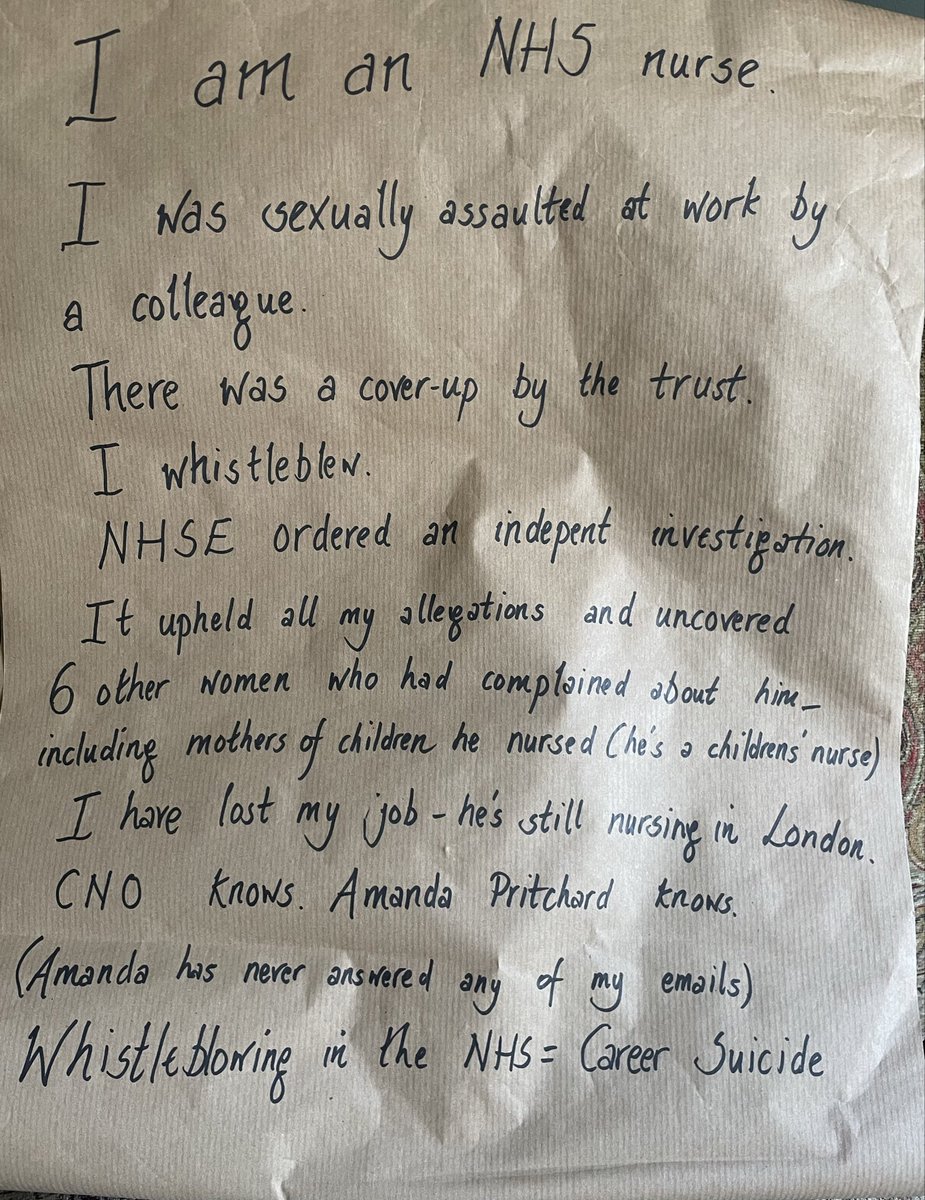 I am an NHS nurse.
I was sexually assaulted at work by
a colleague.
There was a cover-up by the trust.
I whistleblew.
NHSE ordered an indepent investigation.
It upheld all my allegations and uncovered
6 other women who had complained about him_
including mothers of children he nursed (he's a childrens' nurse)
I have lost my job - he's still nursing in London.
CNO knows. Amanda Pritchard knows.
(Amanda has never answered any of my emails)
Whistleblowing in the NHS = Career Suicide